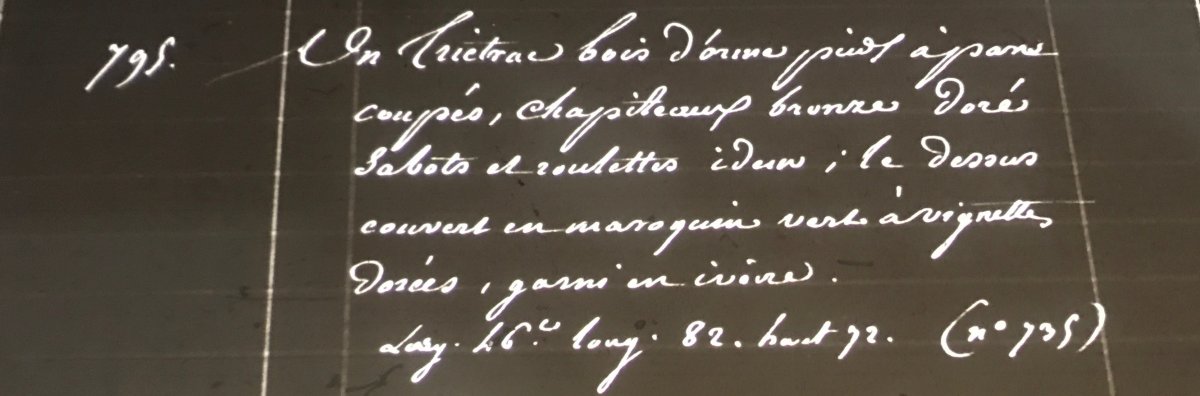 795. Un Trictrac bois d'orme pieds à pans
coupés, chapiteaux bronze doré
Sabots et roulettes idem ; le dessus
couvert en maroquin vert à vignettes
dorées, garni en ivoire.
Larg. 46.c long. 82. haut 72. (n° 735)